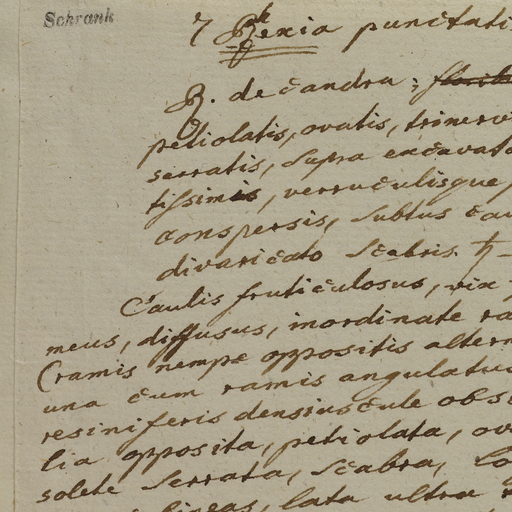 Schrank
7 Rhexia punctati
R. decandra; floribu
petiolatis, ovatis, trinervi
serratis, supra excavato
tissimis, verruculisque,
conspersis, subtus cau
divaricato scabris. ♄
Caulis fruticulosus, vix
meus, diffusus, inordinate ra
(ramis nempe oppositis altern
una cum ramis angulatus
resiniferis densiuscule obs
lia opposita, petiolata, ov
solete serrata, scabra, lo
lineas, lata ultra